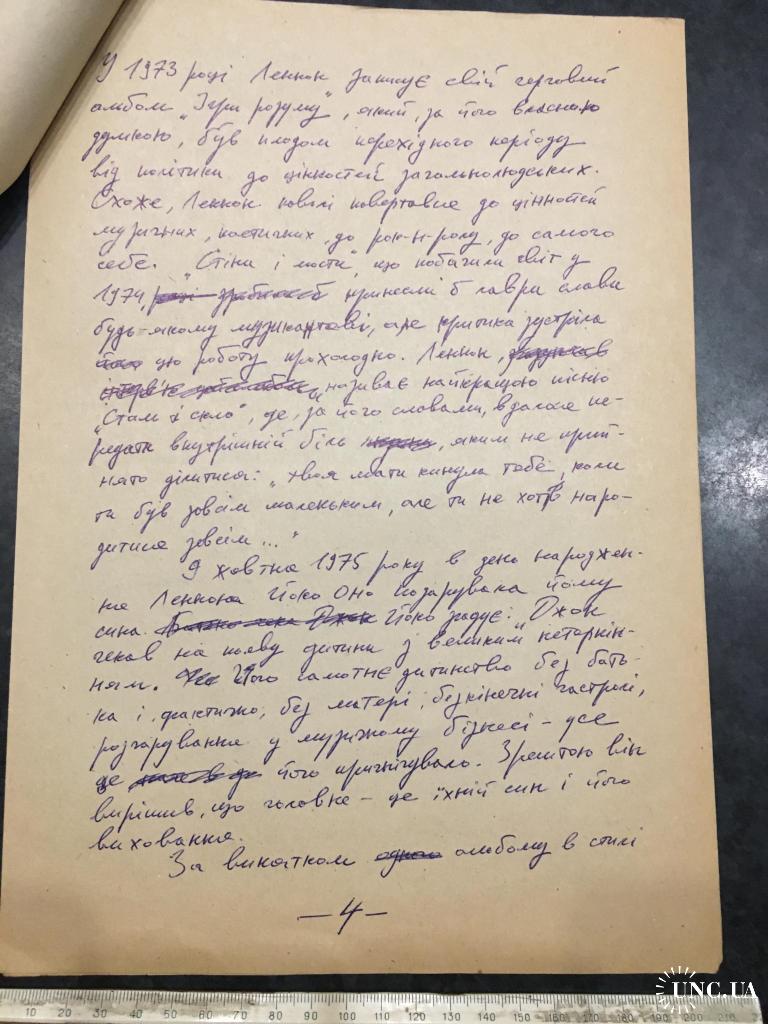 У 1973 році Леннон записує свій черговий
альбом „Ігри розуму", який, за його власною
думкою, був плодом перехідного періоду
від політики до цінностей загальнолюдських.
Схоже, Леннон поволі повертався до цінностей
музичних, поетичних, до рок-н-ролу, до самого
себе. „Стіни і мости", що побачили світ у
1974, принесли б лаври слави
будь-якому музикантові, але критика зустріла
цю роботу прохолодно. Леннон,
називає найкращою піснею
„Сталь і скло", де, за його словами, вдалося пе-
редати внутрішній біль, яким не прий-
нято ділитися: „твоя мати кинула тебе, коли
ти був зовсім маленьким, але ти не хотів наро-
дитися зовсім..."
9 жовтня 1975 року в день народжен-
ня Леннона Йоко Оно подарувала йому
сина. Йоко згадує: „Джон
чекав на появу дитини з великим нетерпін-
ням. Його самотнє дитинство без бать-
ка і, фактично, без матері, безкінечні гастролі,
розчарування у музичному бізнесі – усе
це його пригнічувало. Зрештою він
вирішив, що головне – це їхній син і його
виховання.
За винятком альбому в стилі
—4—
UNC.UA
10 20 30 40 50 60 70 80 90 100 110 120 130 140 150 160 170 180 190 200 210